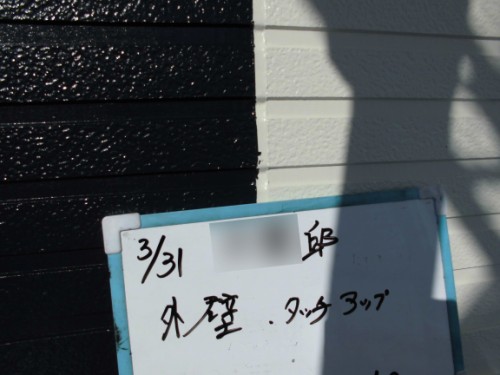 3/31 邸
外壁.タッチアップ